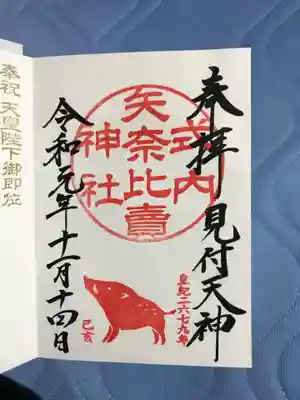 奉拝
見付天神
式内
矢奈比賣
神社
皇紀二六七九年
己亥
令和元年十一月十四日
奉祝 天皇陛下御即位